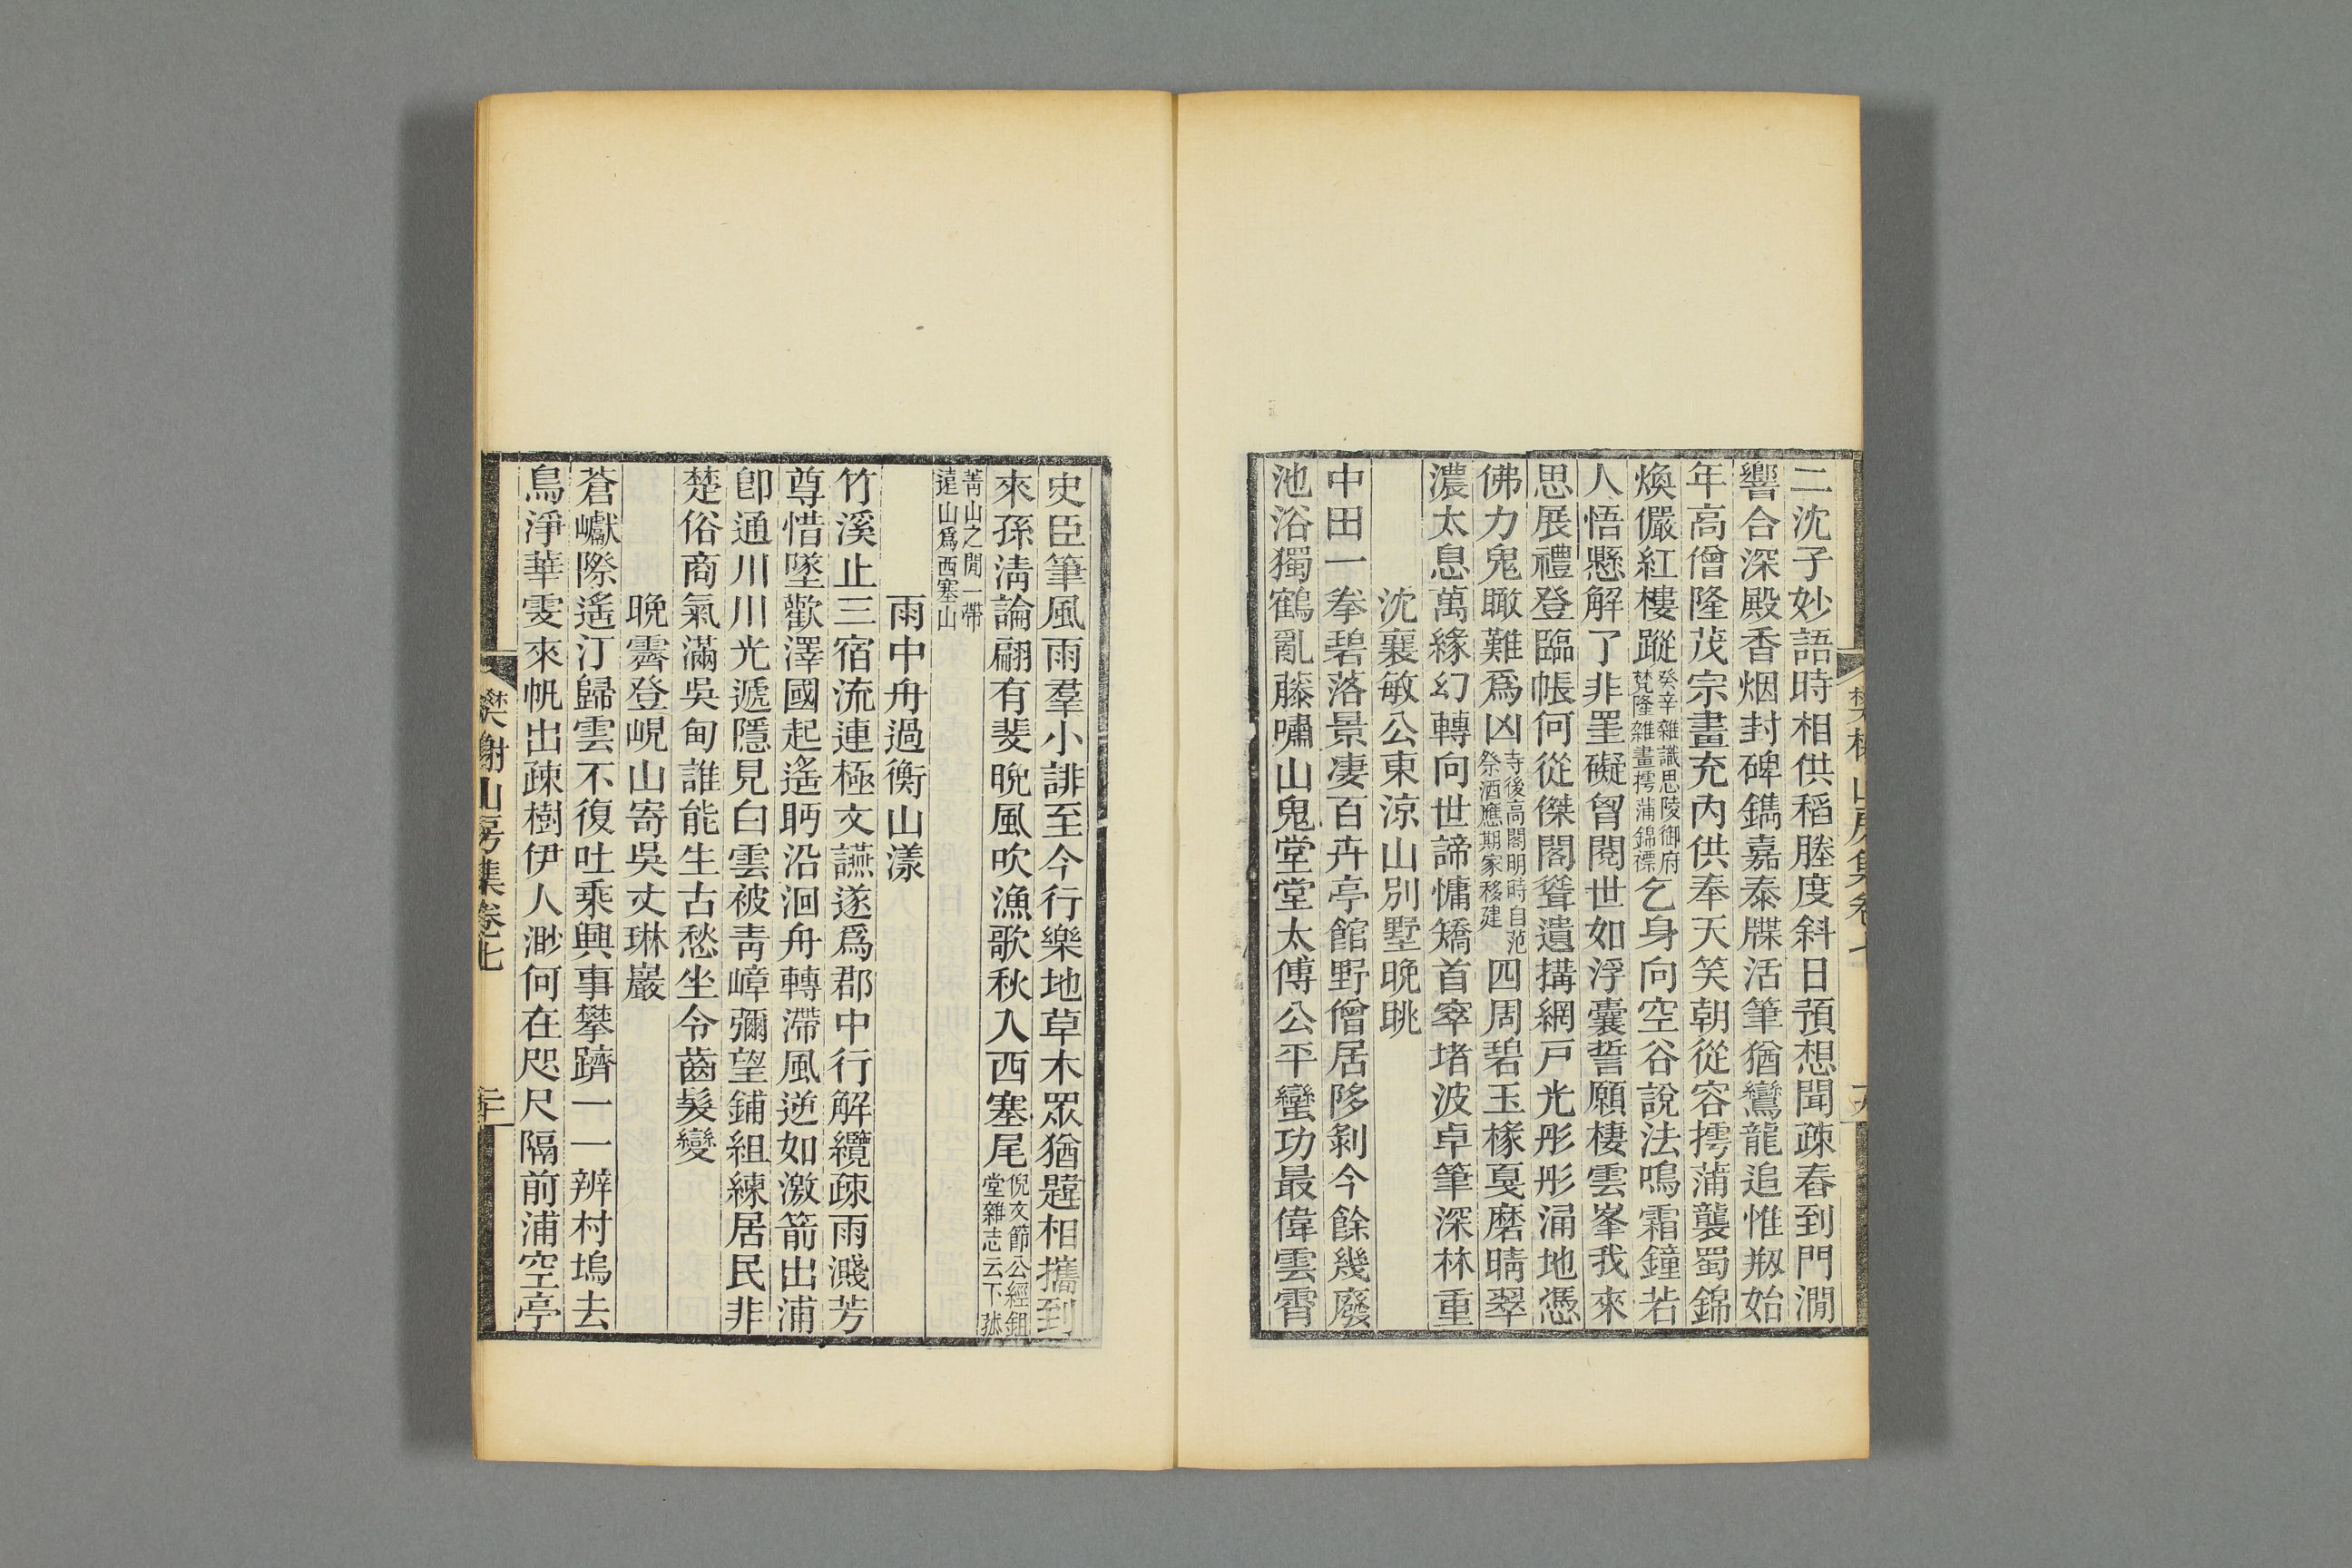 二沈子妙語時相供稻塍度斜日預想聞疎舂到門澗
響合深殿香烟封碑鐫嘉泰牒活筆猶鸞龍追惟剏始
年高僧隆茂宗畫充內供奉天笑朝從容摴蒲襲蜀錦
煥儼紅樓蹤癸辛雜識思陵御府梵隆雜畫摴蒲錦褾乞身向空谷說法鳴霜鐘若
人悟懸解了非罣礙曾閱世如浮囊誓願棲雲峯我來
思展禮登臨帳何從傑閣聳遺搆網戸光彤彤涌地憑
佛力鬼瞰難爲凶寺後高閣明時自范祭酒應期家移建四周碧玉椽戛磨晴翠
濃太息萬緣幻轉向世諦慵矯首窣堵波卓筆深林重
沈襄敏公東涼山別墅晚眺
中田一拳碧落景凄百卉亭館野僧居陊剝今餘幾廢
池浴獨鶴亂藤嘯山鬼堂堂太傅公平蠻功最偉雲霄
史臣筆風雨羣小誹至今行樂地草木眾猶韙相攜到
來孫淸論翩有斐晩風吹漁歌秋入西塞尾倪文節公經鉏堂雜志云下菰
菁山之閒一帶遠山爲西塞山
雨中舟過衡山漾
竹溪止三宿流連極文讌遂爲郡中行解纜疎雨濺芳
尊惜墜歡澤國起遙眄沿洄舟轉滯風逆如激箭出浦
卽通川川光遞隱見白雲被靑嶂彌望鋪組練居民非
楚俗商氣滿吳甸誰能生古愁坐令齒髮變
晚霽登峴山寄吳丈琳巖
蒼巘際遙汀歸雲不復吐乘興事攀躋一一辨村塢去
鳥淨華雯來帆出疎樹伊人渺何在咫尺隔前浦空亭
樊榭山房集卷七